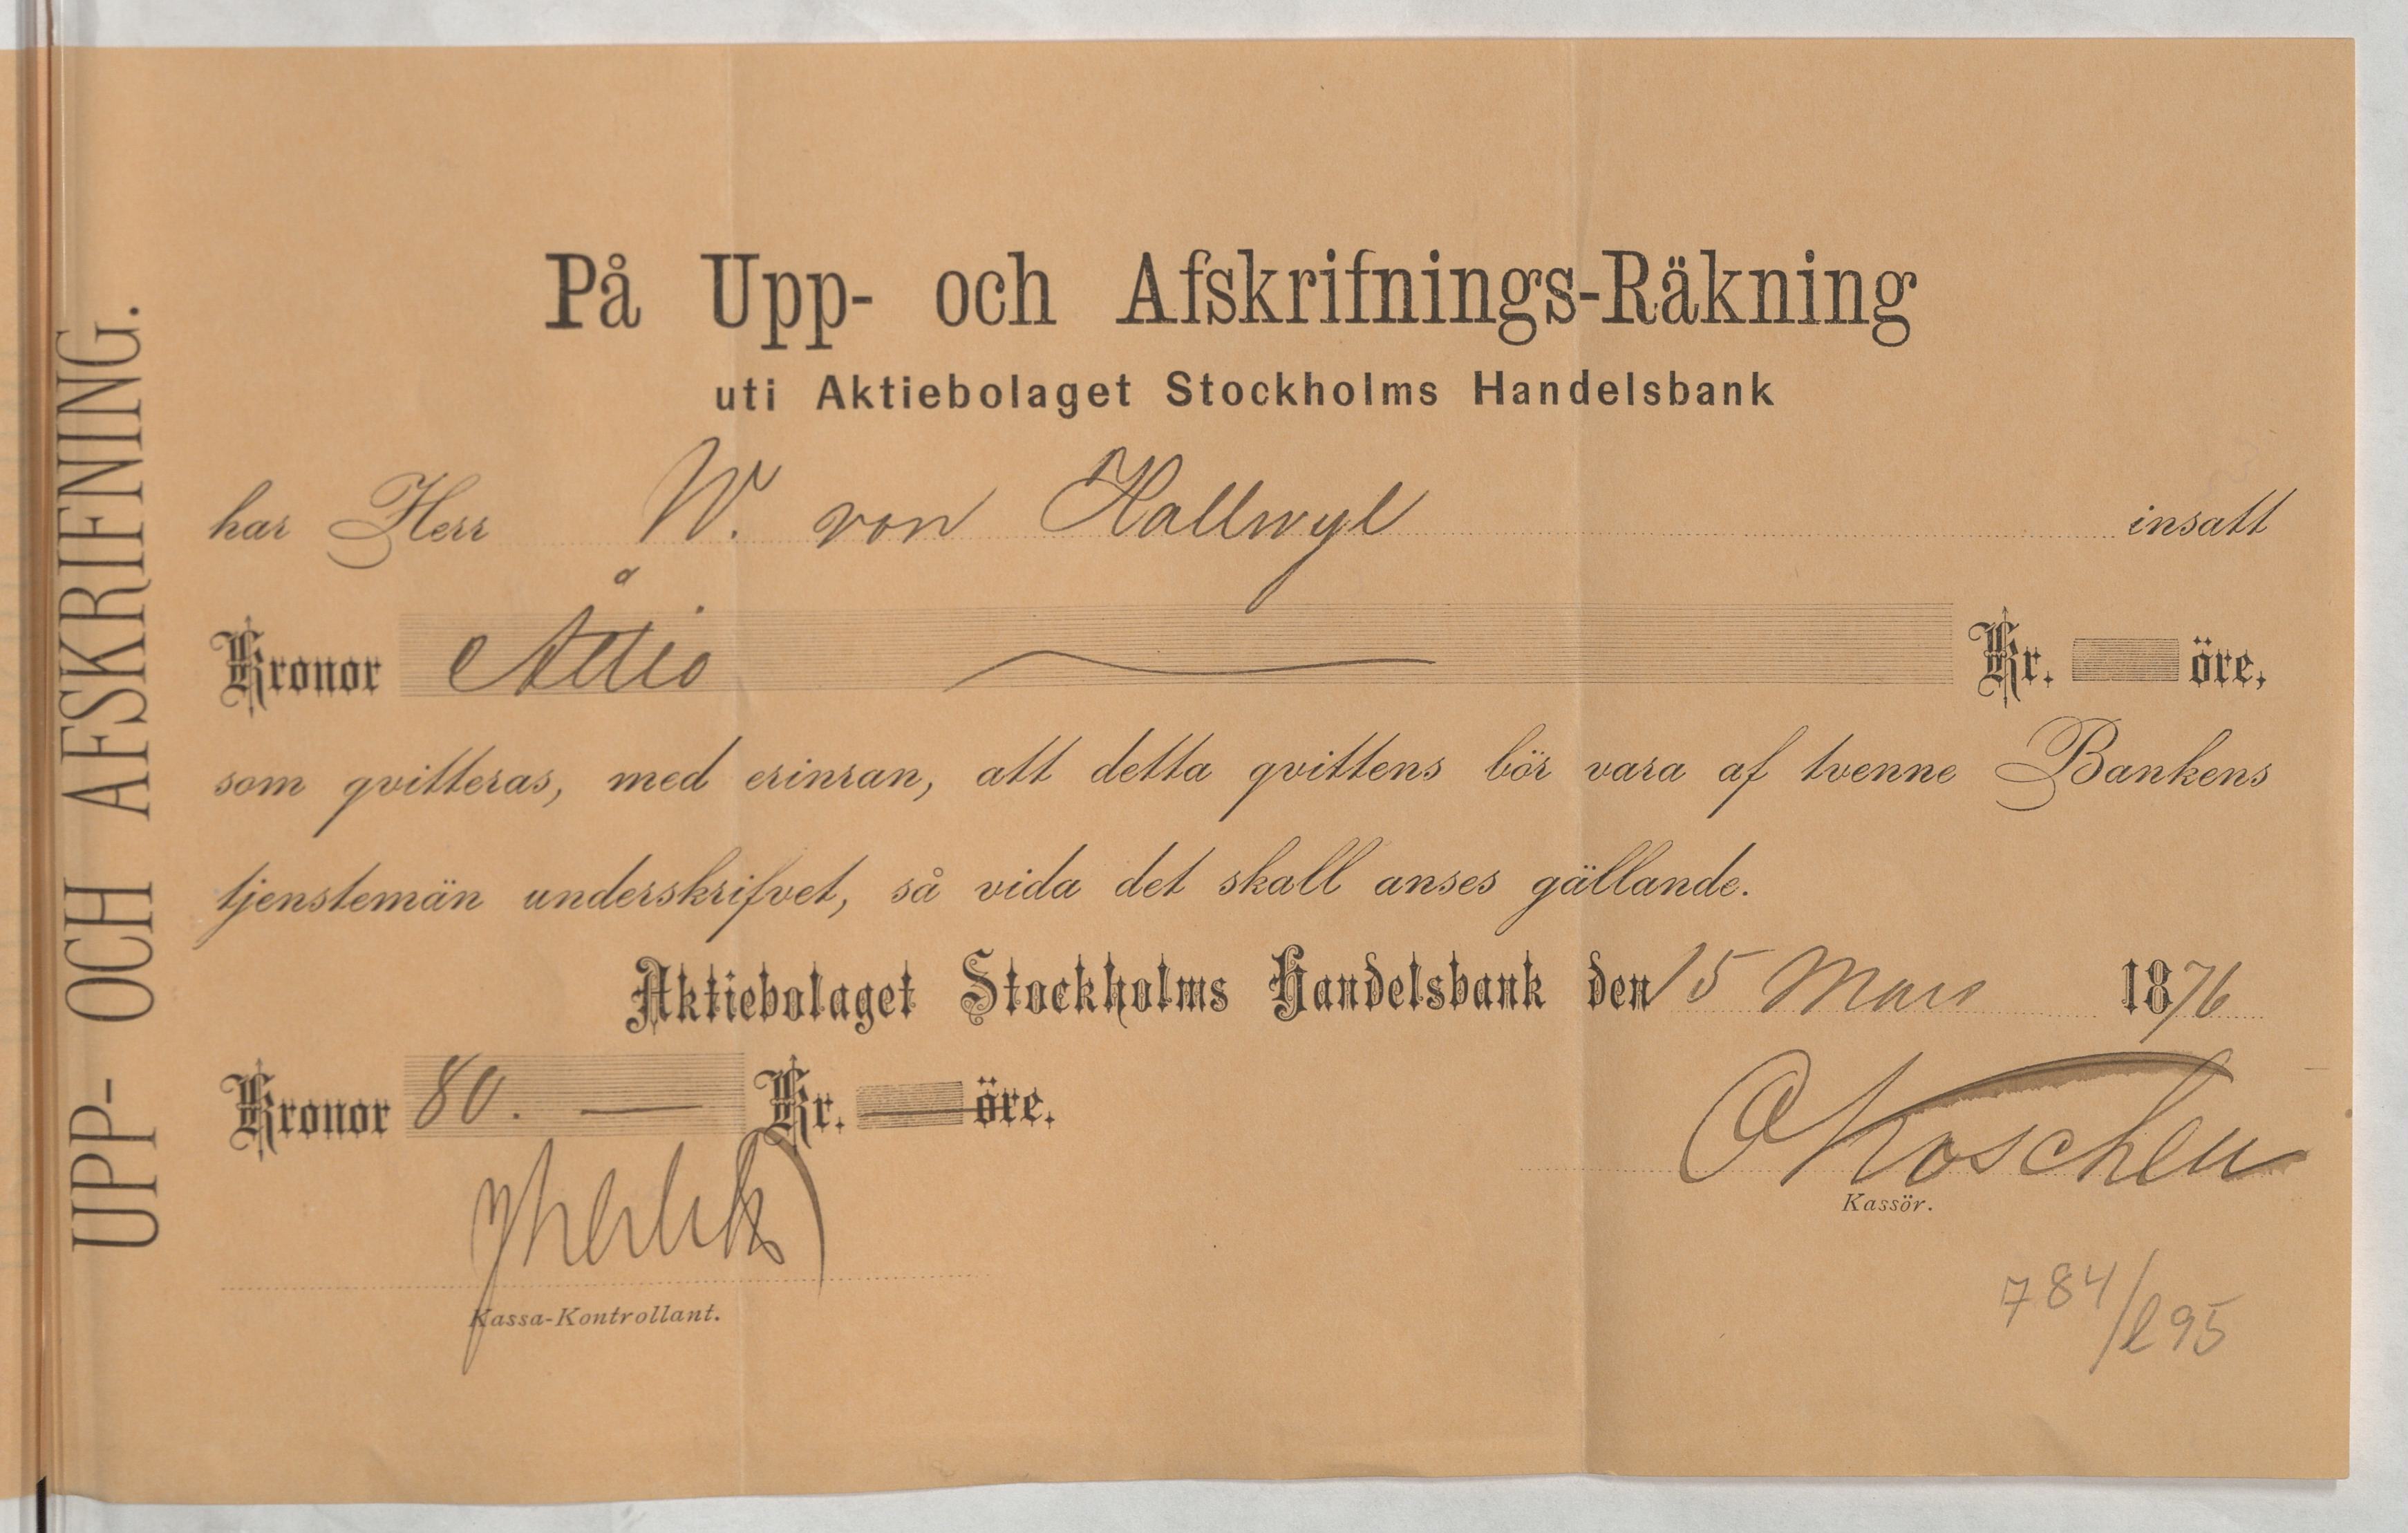 UPP- OCH AFSKRIFNING.
På Upp- och Afskrifnings-Räkning
uti Aktiebolaget Stockholms Handelsbank
har Herr W. von Hallwyl insatt
Kronor Åttio Kr. öre,
som qvitteras, med erinran, att detta qvittens bör vara af tvenne Bankens
tjenstemän underskrifvet, så vida det skall anses gällande.
Aktiebolaget Stockholms Handelsbank den 15 Mars 1876
Kronor 80. — Kr. öre.
Kassör.
Kassa-Kontrollant.
784/l95